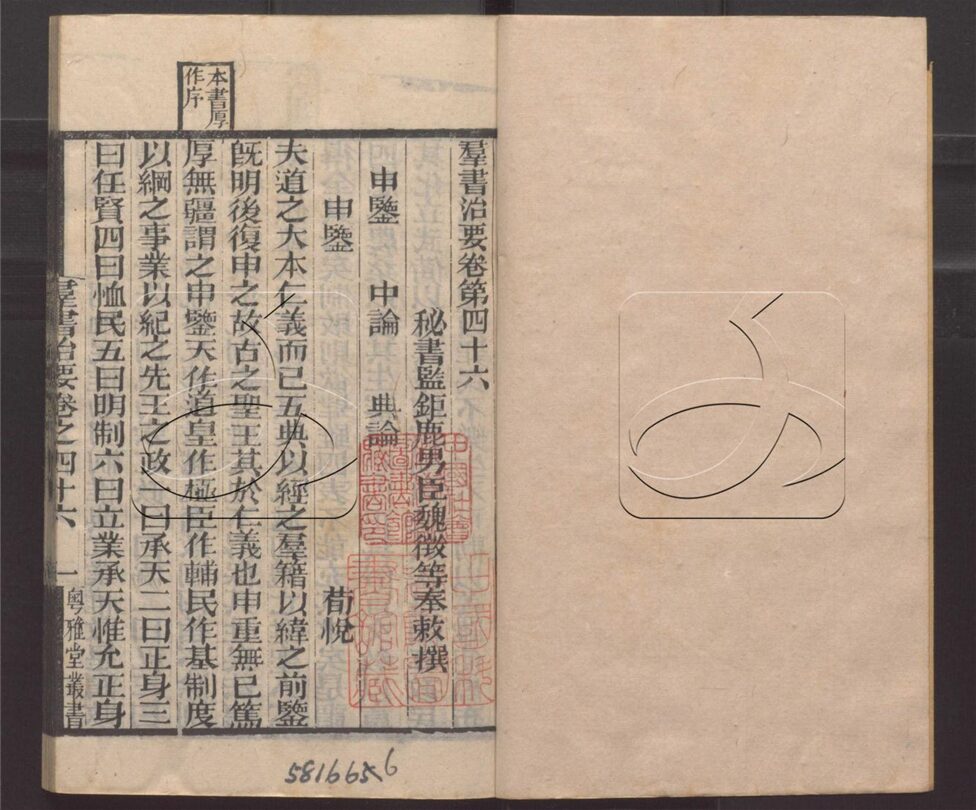 羣書治要卷第四十六
秘書監鉅鹿男臣魏徵等奉敕撰
申鑒 中論 典論
申鑒 荀悅
夫道之大本仁義而已五典以經之羣籍以緯之前鑒
既明後復申之故古之聖王其於仁義也申重無已篤
厚無疆謂之申鑒天作道皇作極臣作輔民作基制度
以綱之事業以紀之先王之政一曰承天二曰正身三
曰任賢四曰恤民五曰明制六曰立業承天惟允正身
羣書治要卷之四十六 一 粵雅堂叢書
本書厚
作序
5816656